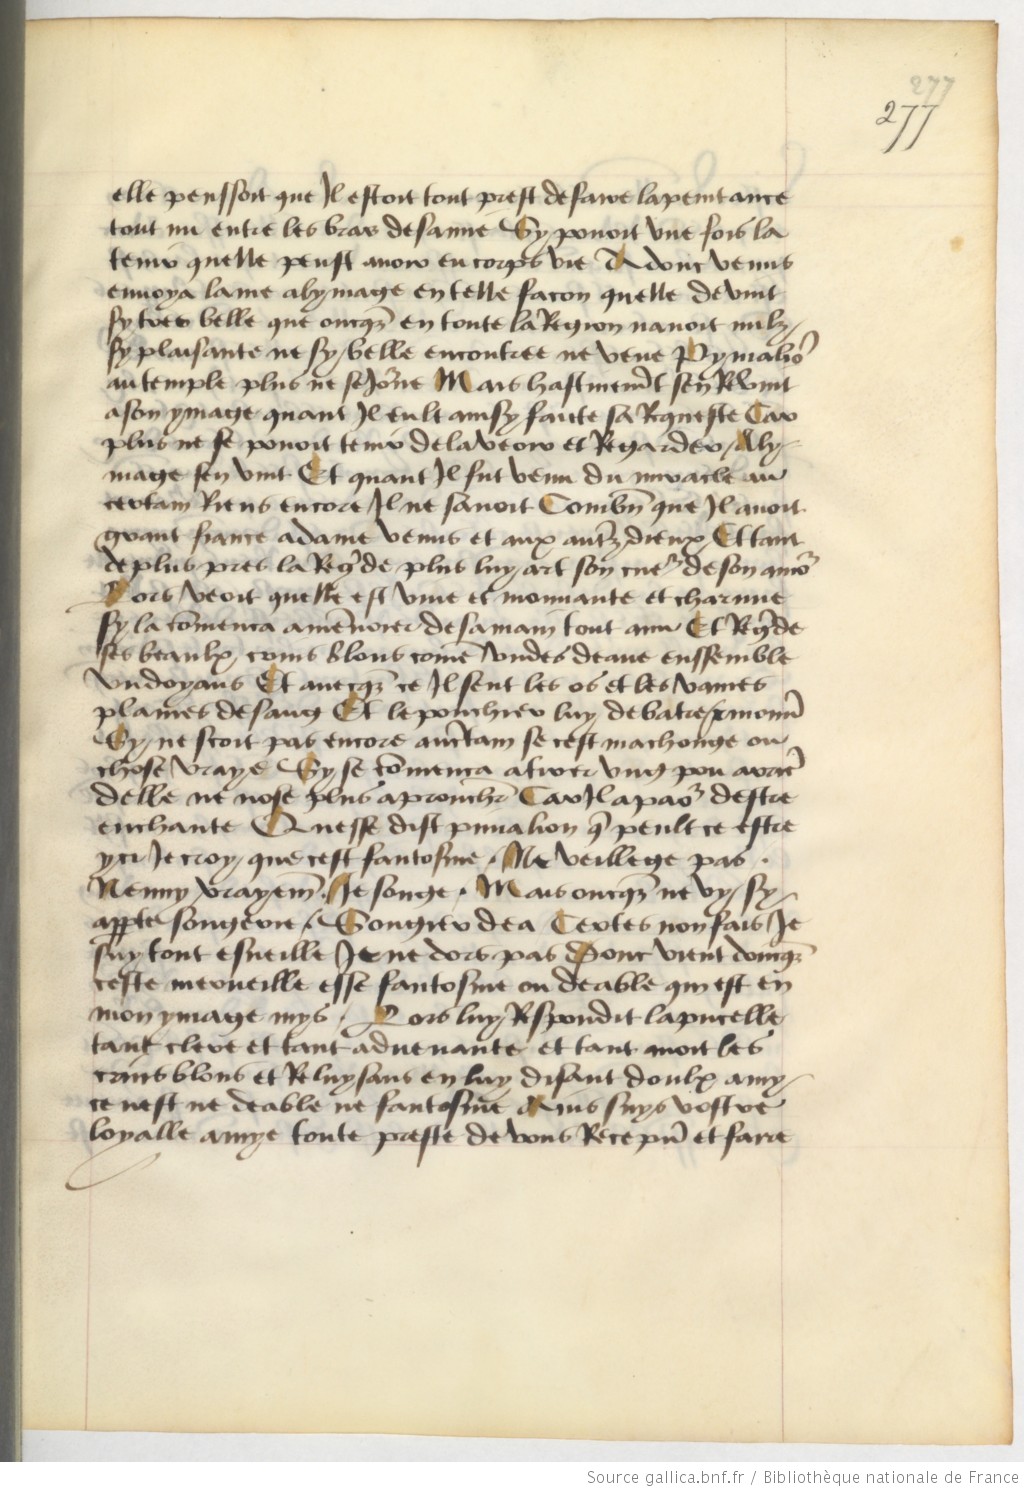 277
277
elle penssoit que Il estoit tout prest de faire la penitance
tout nu entre les bras de samie Sy povoit une fois la
tenir quelle peust avoir en corps vie Adonc venus
envoya lame a lymage en telle facon quelle devint
sy tres belle que oncqz en toute la Region navoit nulz
sy plaisante ne sy belle encontree ne veue Pymalio
au temple plus ne seJorne Mais hastivemt sen Revint
a son ymage quant Il eult ainsy faicte sa Requeste Car
plus ne se povoit tenir de la veoir et Regarder A ly
mage sen vint Et quant Il fut venu du miracle au
certain Riens encore Il ne savoit Combn que Il avoit
grant fiance a dame venus et aux autrz dieux Et tant
de plus pres la Regde plus luy art son cuer de son amor
Lors veoit quelle est vive et mouvante et charnue
sy la comenca a menoier de sa main tout a nu Et Regde
ses beaulx crins blons come undes deaue enssemble
undoyans Et avecqz ce Il sent les os et les vaines
plaines de sang Et le pouchier luy debatre et mouv
Sy ne scoit pas encore au certain se cest machonge ou
chose vraye Sy se comenca a tirer ung pou arrie
delle ne nose plus aprouchr Car Il a paor destre
enchante Quesse dist pimalion q peult ce estre
ycy Je croy que cest fantosme . Ne veillege pas .
Nenny vrayem . Je songe . Mais oncqz ne vy sy
apperte songerie . Songier dea Certes non fais Je
suy tout esveille Je ne dors pas Donc vient doncqz
ceste merveille esse fantosme ou deable qui est en
mon ymage mys . Lors luy Respondit la pucelle
tant clere et tant advenante et tant avoit les
crins blons et Reluysans en luy disant doulx amy
ce nest ne deable ne fantosme Ains suys vostre
loyalle amye toute preste de vous Recepvr et faire
Source gallica.bnf.fr / Bibliothèque nationale de France